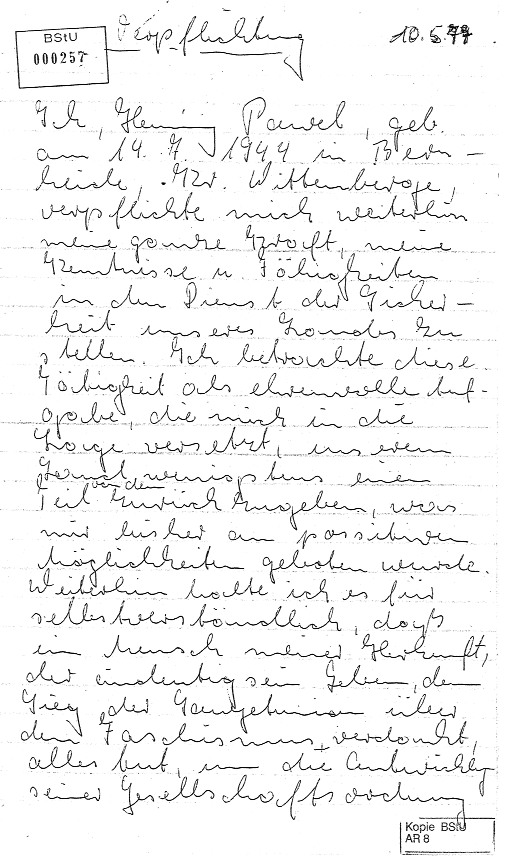 BStU
000257
Verpflichtung
10.5.77
Ich, Henning Pawel, geb.
am 14. 7. 1944 in Bern-
heide, Krr. Wittenberge,
verpflichte mich weiterhin
meine ganze Kraft, meine
Kenntnisse u Fähigkeiten
in den Dienst der Sicher-
heit unseres Landes zu
stellen. Ich betrachte diese
Tätigkeit als ehrenvolle Auf-
gabe, die mich in die
Lage versetzt, unserem
Land wenigstens einen
Teil von dem zurückzugeben, was
mir bisher an possitiven
Möglichkeiten geboten wurde.
Weiterhin halte ich es für
selbstverständlich, daß
ein Mensch meiner Herkunft,
der eindeutig sein Leben, dem
Sieg der Sowjetunion über
den Faschismus, verdankt,
alles tut, um die Entwicklg
seiner Gesellschaftsordnung
Kopie BStU
AR 8